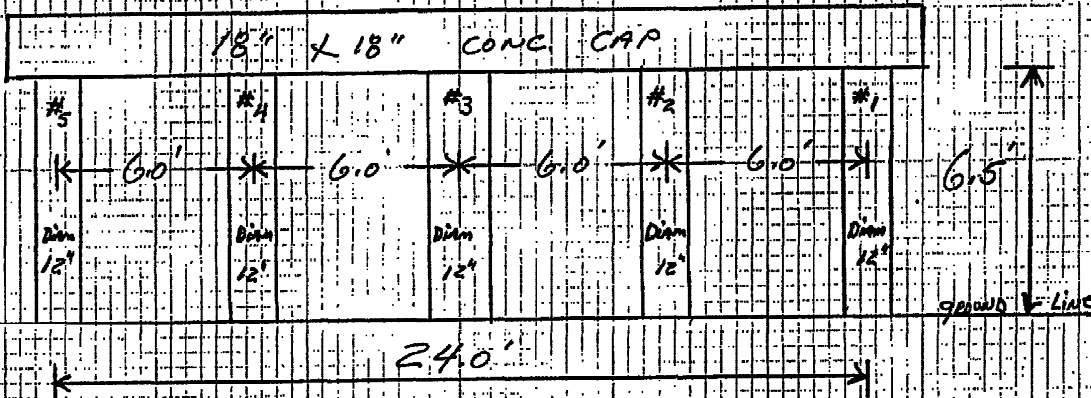 18" x 18" CONC. CAP
#5 #4 #3 #2 #1
6.0' 6.0' 6.0' 6.0' 6.5'
Diam Diam Diam Diam Diam
12" 12" 12" 12" 12"
ground LINE
24.0'